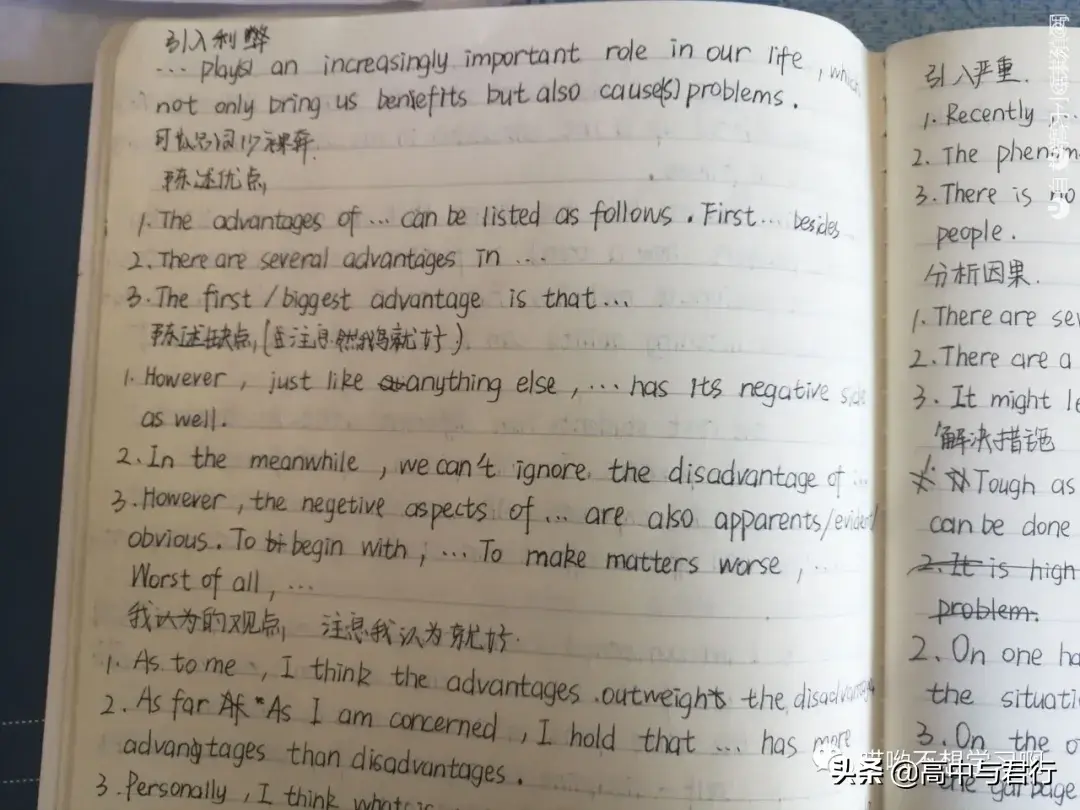 引入利弊
... plays an increasingly important role in our life , which
not only bring us benefits but also cause(s) problems .
陈述优点,
1. The advantages of ... can be listed as follows . First ... besides
2. There are several advantages in ...
3. The first / biggest advantage is that ...
陈述缺点, (注意然我就好)
1. However , just like anything else , ... has its negative side
as well.
2. In the meanwhile , we can't ignore the disadvantage of ...
3. However , the negetive aspects of ... are also apparents/evident/
obvious . To begin with , ... To make matters worse , ...
Worst of all , ...
我认为的观点, 注意我认为就好.
1. As to me , I think the advantages outweight the disadvantages
2. As far As I am concerned , I hold that ... has more
advangtages than disadvantages .
3. Personally , I think what is
引入严重.
1. Recently , ...
2. The phenom
3. There is no
people .
分析因果.
1. There are sev
2. There are a
3. It might le
解决措施
1. Tough as
can be done
2. It is high
problem.
2. On one ha
the situati
3. On the o
one garbage
哎哟不想学习啊
头条 @高中与君行